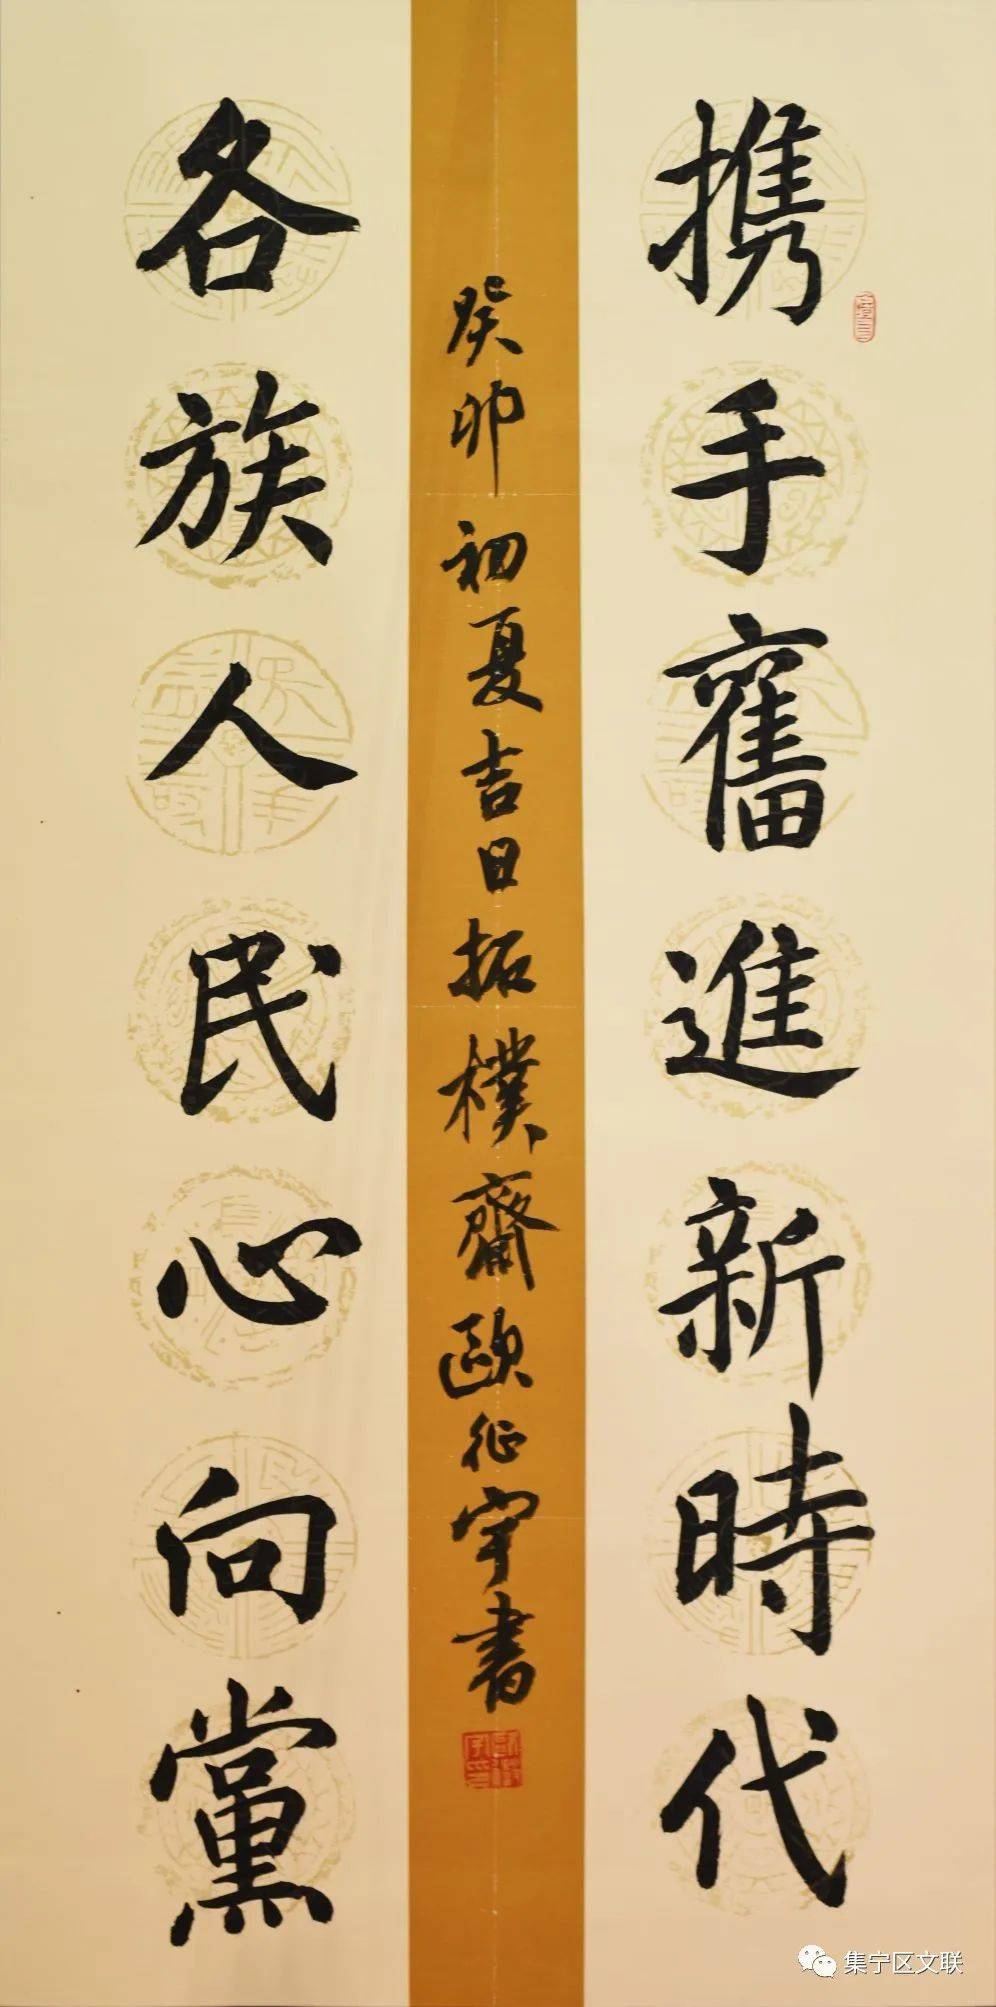 携手奮進新時代
癸卯初夏吉日拓樸齋歐征宇書
各族人民心向黨
集宁区文联